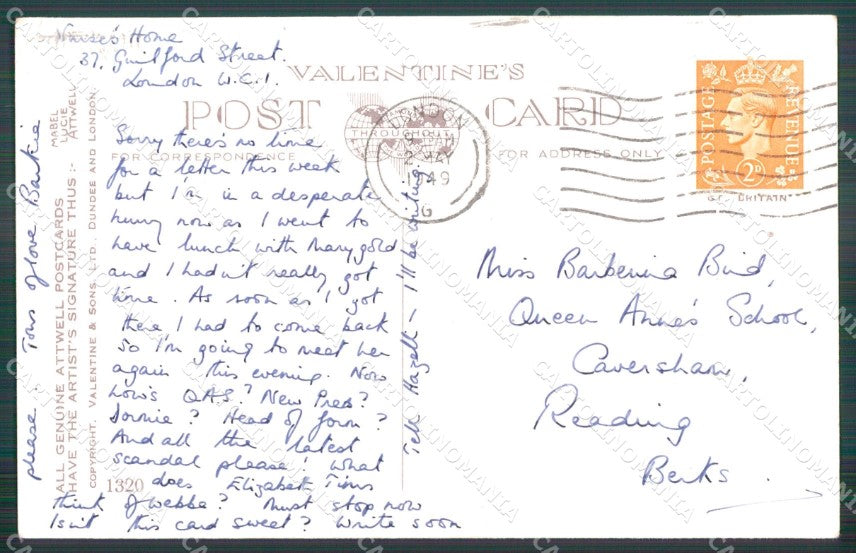 Nurse's Home
37, Guilford Street.
London W.C.1.
VALENTINE'S
POST CARD
THROUGHOUT
FOR CORRESPONDENCE
FOR ADDRESS ONLY
Sorry there's no time
for a letter this week
but I'm in a desperate
hurry now as I went to
have lunch with Marygold
and I hadn't really got
time. As soon as I got
there I had to come back
so I'm going to meet her
again this evening. Now
how's QAS? New Pres?
Dormie? Head of form?
And all the latest
scandal please! What
does Elizabeth Tims
think of Webbe? Must stop now
Isn't this card sweet? Write soon
please. Tons of love Barkie
Tell Hazell - I'll be writing
MABEL
LUCIE
ATTWELL
ALL GENUINE ATTWELL POSTCARDS
HAVE THE ARTIST'S SIGNATURE THUS :-
COPYRIGHT. VALENTINE & SONS, LTD., DUNDEE AND LONDON.
1320
LONDON
MAY
1949
G
POSTAGE
REVENUE
2D
GT. BRITAIN
Miss Barberina Bird,
Queen Anne's School,
Caversham,
Reading
Berks.
CARTOLINOMANIA